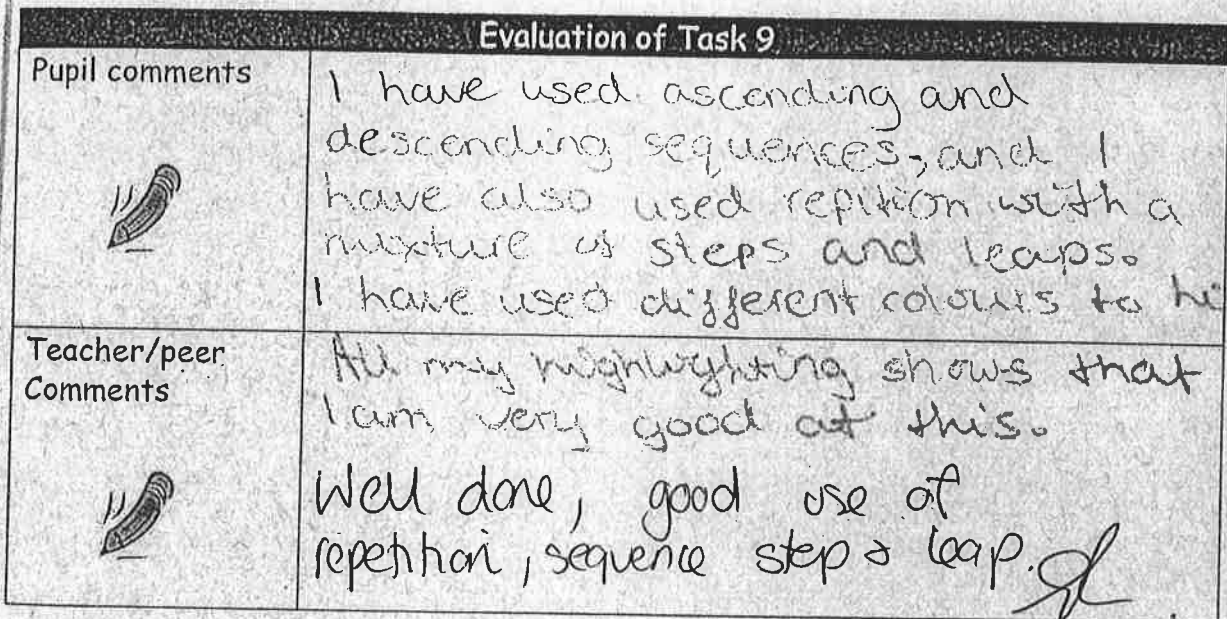 Evaluation of Task 9
Pupil comments
I have used ascending and
descending sequences, and I
have also used repition with a
mixture of steps and leaps.
I have used different colours to hi
Teacher/peer
Comments
All my highlighting shows that
I am very good at this.
Well done, good use of
repetition, sequence step & leap.